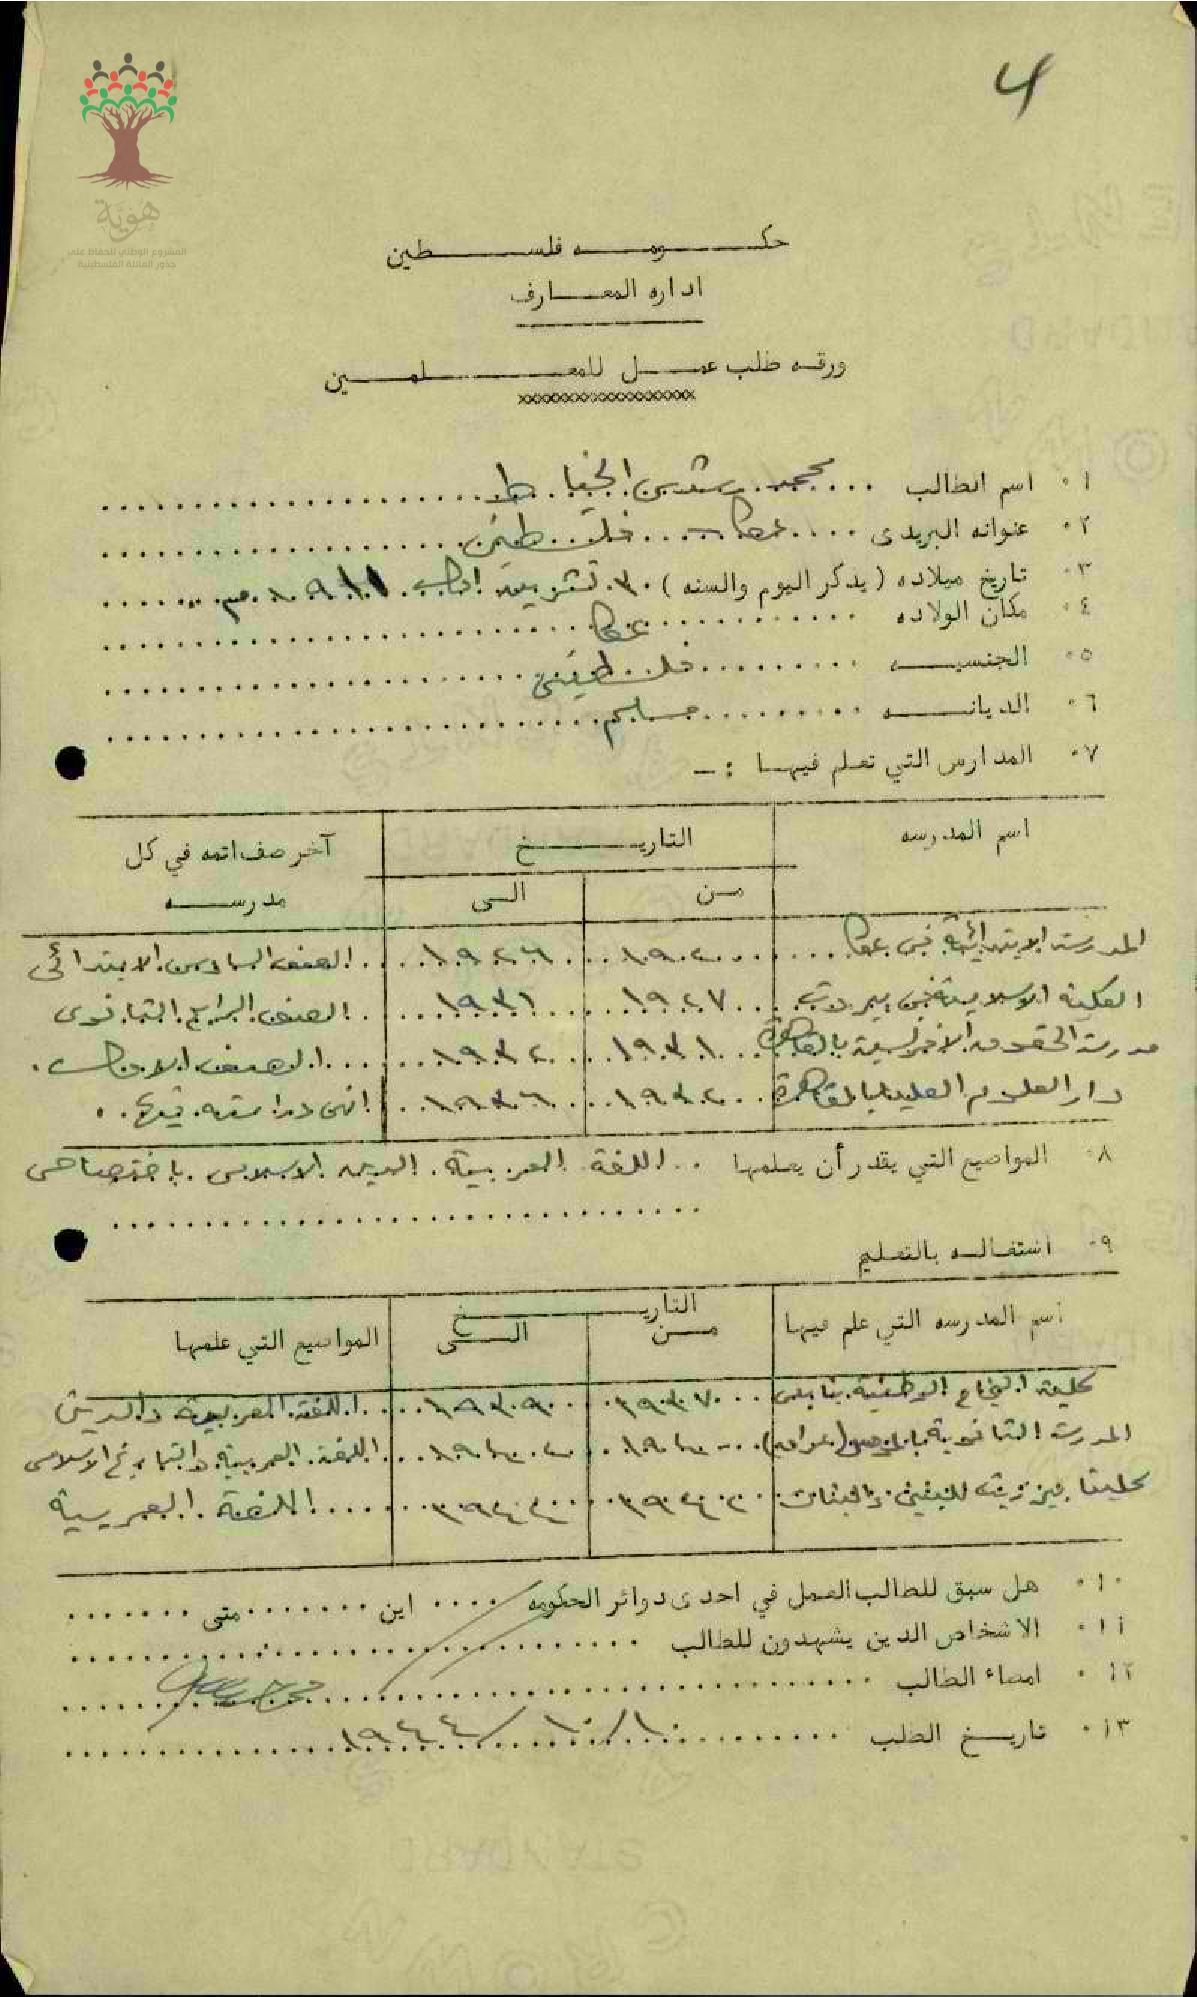 4
هُوِيَّة
المشروع الوطني للحفاظ على
جذور العائلة الفلسطينية
حكومه فلسطين
اداره المعارف
ورقه طلب عمل للمعلمين
xxxxxxxxxxxxxxxxxxxx
١٠ اسم الطالب ... محمد رشدي الخياط
٢٠ عنوانه البريدى .... عكا ... فلسطين
٣٠ تاريخ ميلاده (يذكر اليوم والسنه) ٣٠ تشرين اول ١٩١١ م
٤٠ مكان الولاده عكا
٥٠ الجنسيه فلسطيني
٦٠ الديانه مسلم
٧٠ المدارس التي تعلم فيها :-
اسم المدرسه التاريخ آخر صف اتمه في كل مدرسه
من الى
المدرسة الابتدائية في عكا ١٩٢٠ ١٩٢٦ الصف السادس الابتدائي
الكلية الاسلامية في بيروت ١٩٢٧ ١٩٣١ الصف الرابع الثانوي
مدرسة الحقوق الافرنسية بالقاهرة ١٩٣١ ١٩٣٢ الصف الاول
دار العلوم العليا بالقاهرة ١٩٣٢ ١٩٣٦ انهى دراسته فيها
٨٠ المواضيع التي يقدر أن يعلمها .. اللغة العربية . الدين الاسلامي . باختصاصي
٩٠ اشتغاله بالتعليم
اسم المدرسه التي علم فيها التاريخ المواضيع التي علمها
من الى
كلية النجاح الوطنية بنابلس ١٩٣٧ ١٩٣٩ اللغة العربية والدين
المدرسة الثانوية (عراق) ١٩٤٠ ١٩٤٢ اللغة العربية والتاريخ الاسلامي
كليتا بيرزيت للبنين والبنات ١٩٤٢ ١٩٤٤ اللغة العربية
١٠٠ هل سبق للطالب العمل في احدى دوائر الحكومه .... اين ....... متى .......
١١٠ الاشخاص الدين يشهدون للطالب
١٢٠ امضاء الطالب
١٣٠ تاريخ الطلب ١٠/١٠/١٩٤٤